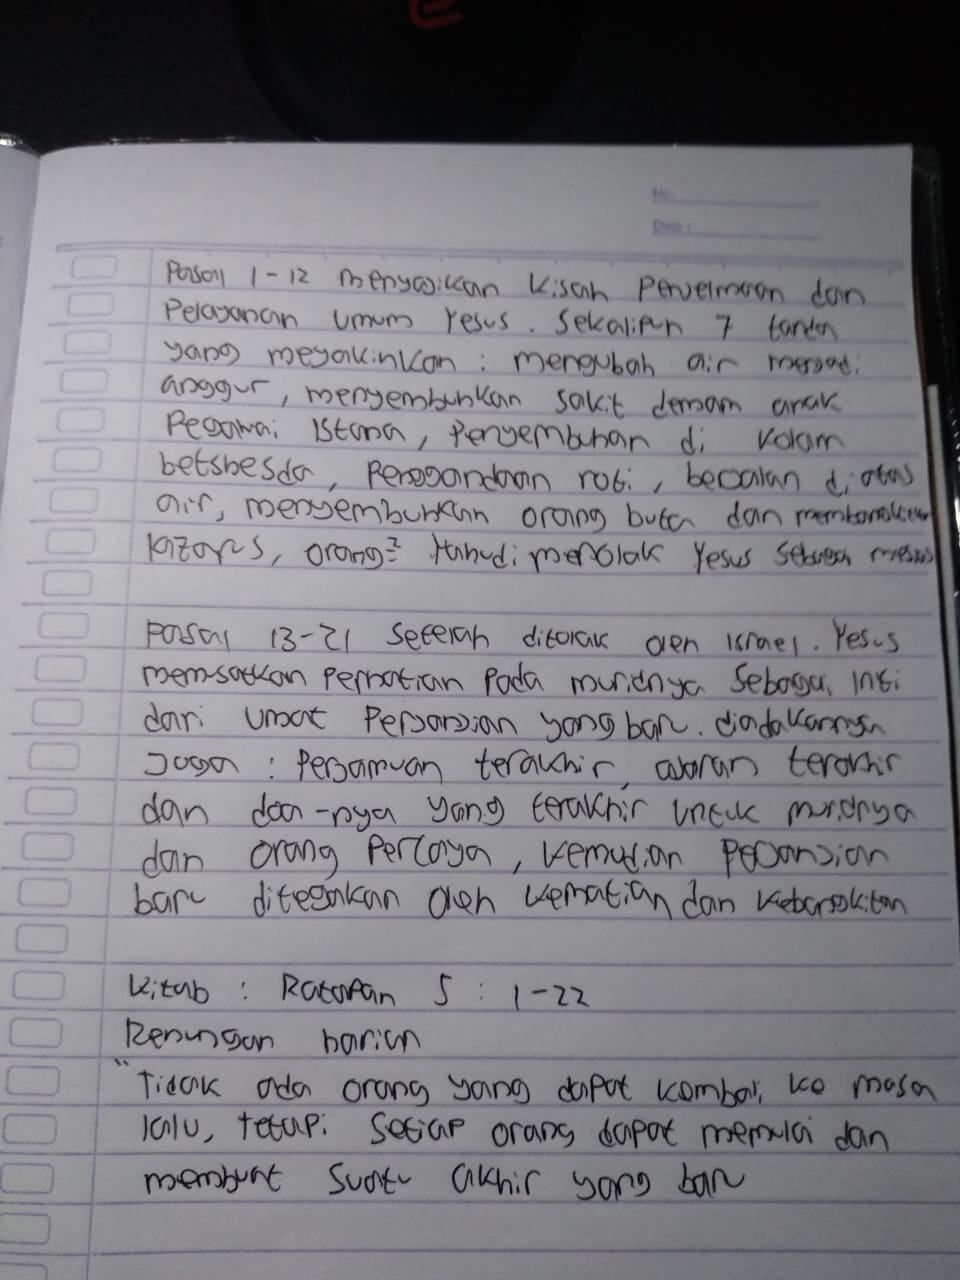 No:
Date:
Pasal 1-12 menyajikan kisah Penjelmaan dan
Pelayanan Umum Yesus. Sekalipun 7 tanda
yang meyakinkan: mengubah air menjadi
anggur, menyembuhkan sakit demam anak
Pegawai Istana, Penyembuhan di kolam
betshesda, Penggandaan roti, berjalan di atas
air, menyembuhkan orang buta dan membangkitkan
Lazarus, orang² Yahudi menolak Yesus sebagai mesias
Pasal 13-21 Setelah ditolak oleh Israel. Yesus
memusatkan Perhatian Pada muridnya Sebagai Inti
dari Umat Perjanjian yang baru. diadakannya
Juga: Perjamuan terakhir, ajaran terakhir
dan doa-nya yang terakhir untuk muridnya
dan orang Percaya, kemudian Perjanjian
baru ditegakan oleh kematian dan kebangkitan
Kitab : Ratapan 5 : 1-22
Renungan harian
"Tidak ada orang yang dapat kembali ke masa
lalu, tetapi Setiap orang dapat memulai dan
membuat Suatu akhir yang baru